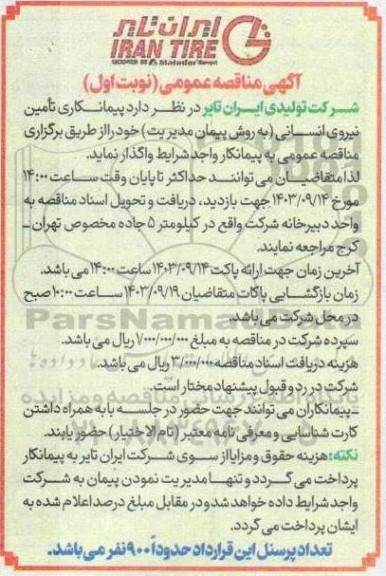 ایران تایر
IRAN TIRE
آگهی مناقصه عمومی (نوبت اول)
شرکت تولیدی ایران تایر در نظر دارد پیمانکاری تأمین
نیروی انسانی (به روش پیمان مدیریت) خود را از طریق برگزاری
مناقصه عمومی به پیمانکار واجد شرایط واگذار نماید.
لذا متقاضیان می توانند حداکثر تا پایان وقت ساعت ۱۴:۰۰
مورخ ۱۴۰۳/۰۹/۱۴ جهت بازدید، دریافت و تحویل اسناد مناقصه به
واحد دبیرخانه شرکت واقع در کیلومتر ۵ جاده مخصوص تهران ـ
کرج مراجعه نمایند.
آخرین زمان جهت ارائه پاکت ۱۴۰۳/۰۹/۱۴ ساعت ۱۴:۰۰ می باشد.
زمان بازگشایی پاکات متقاضیان ۱۴۰۳/۰۹/۱۹ ساعت ۱۰:۰۰ صبح
در محل شرکت می باشد.
سپرده شرکت در مناقصه به مبلغ ۱/۰۰۰/۰۰۰/۰۰۰ ریال می باشد.
هزینه دریافت اسناد مناقصه ۳/۰۰۰/۰۰۰ ریال می باشد.
شرکت در رد و قبول پیشنهاد مختار است.
ـ پیمانکاران می توانند جهت حضور در جلسه با به همراه داشتن
کارت شناسایی و معرفی نامه معتبر (تام الاختیار) حضور یابند.
نکته: هزینه حقوق و مزایا از سوی شرکت ایران تایر به پیمانکار
پرداخت می گردد و تنها مدیریت نمودن پیمان به شرکت
واجد شرایط داده خواهد شد و در مقابل مبلغ درصد اعلام شده به
ایشان پرداخت می گردد.
تعداد پرسنل این قرارداد حدوداً ۹۰۰ نفر می باشد.